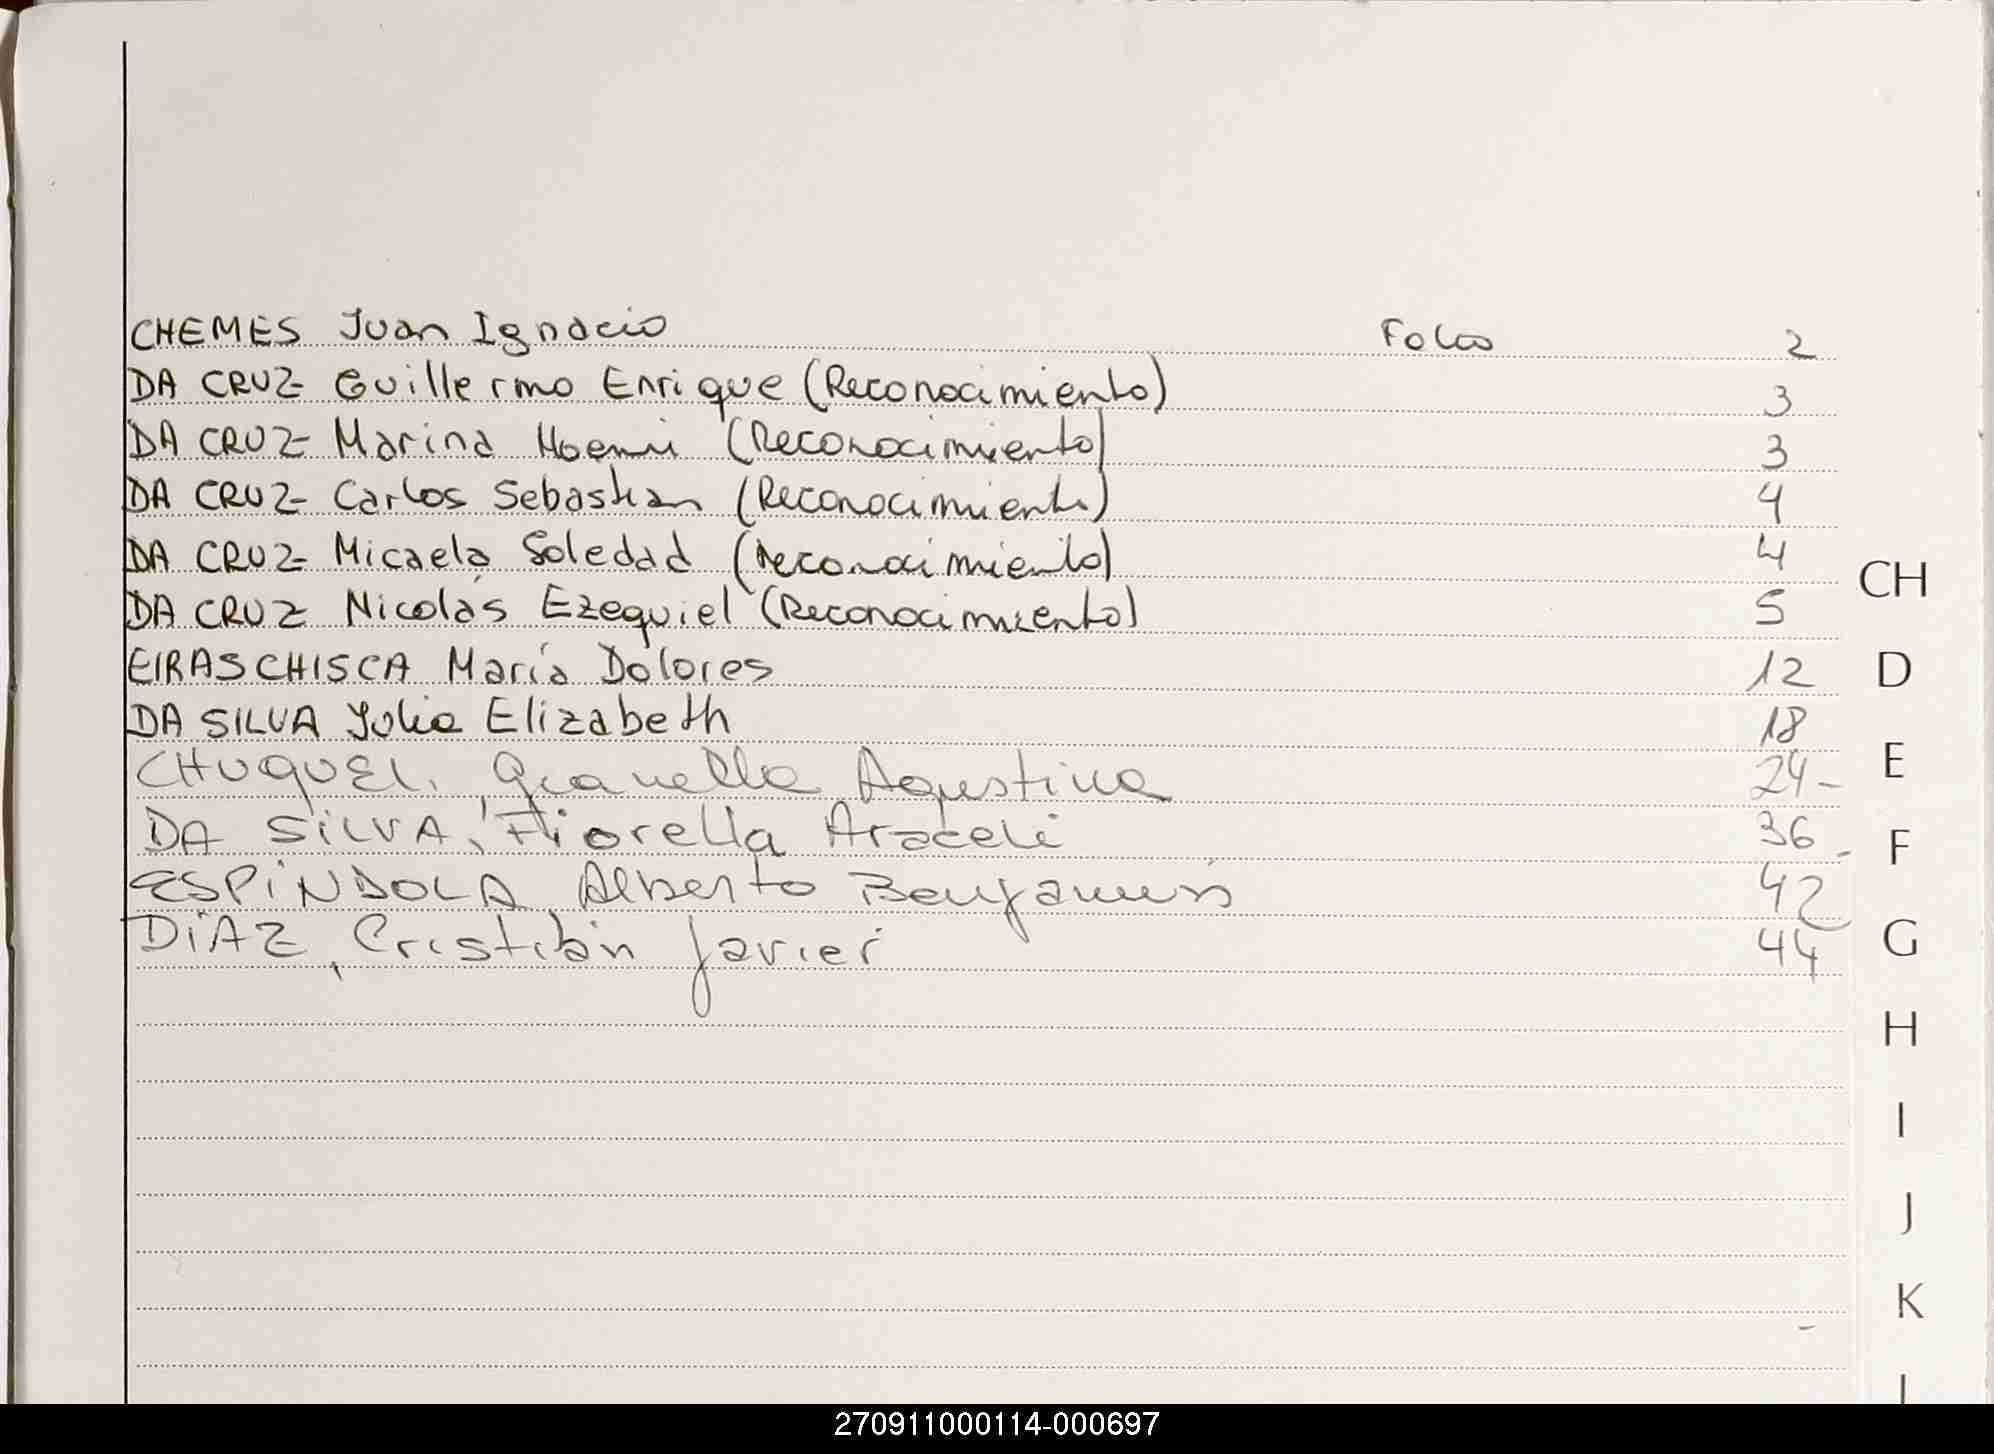 CHEMES Juan Ignacio Folio 2
DA CRUZ Guillermo Enrique (Reconocimiento) 3
DA CRUZ Marina Noemi (Reconocimiento) 3
DA CRUZ Carlos Sebastian (Reconocimiento) 4
DA CRUZ Micaela Soledad (reconocimiento) 4
DA CRUZ Nicolás Ezequiel (Reconocimiento) 5
EIRASCHISCA María Dolores 12
DA SILVA Julia Elizabeth 18
CHUQUEL, Gianella Agustina 24-
DA SILVA, Fiorella Araceli 36-
ESPÍNDOLA, Alberto Benjamín 42
DÍAZ, Cristián Javier 44
CH
D
E
F
G
H
I
J
K
270911000114-000697